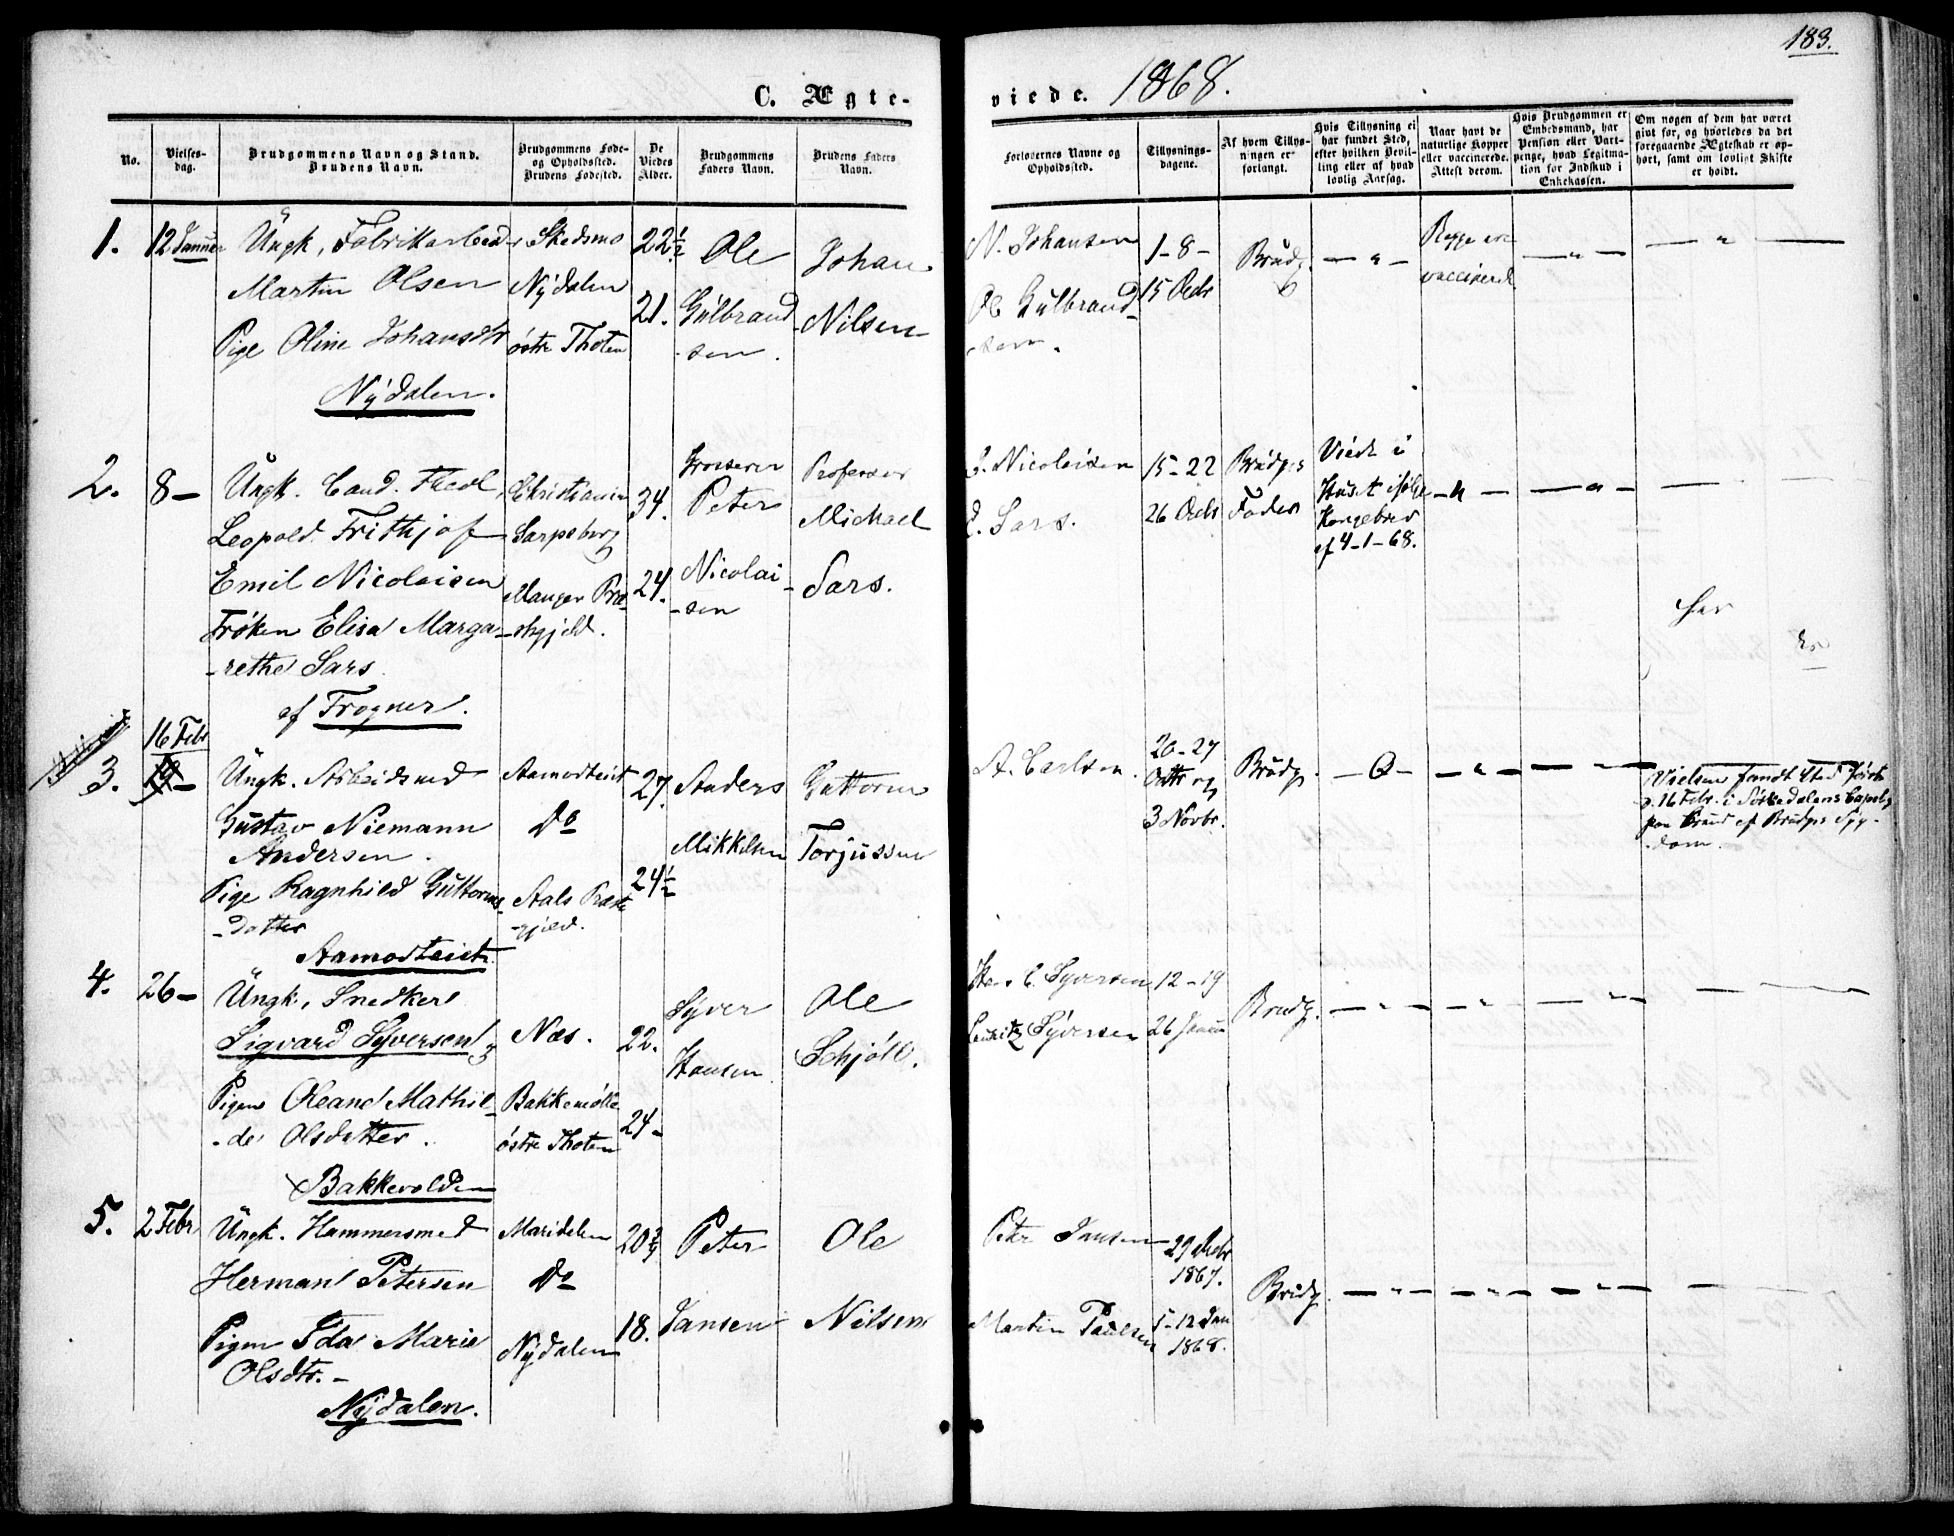 183.
C. Ægte-
viede. 1868.
No.
Vielses-
dag.
Brudgommens Navn og Stand.
Brudens Navn.
Brudgommens Føde-
og Opholdssted.
Brudens Fødested.
De
Viedes
Alder.
Brudgommens
Faders Navn.
Brudens Faders
Navn.
Forlovernes Navne og
Opholdssted.
Tillysnings-
dagene.
Af hvem Tillys-
ningen er
forlangt.
Hvis Tillysning ei
har fundet Sted,
efter hvilken Bevil-
ling eller af hvad
lovlig Aarsag.
Naar havt de
naturlige Kopper
eller vaccinerede.
Attest derom.
Hvis Brudgommen er
Embedsmand, har
Pension eller Vart-
penge, hvad Legitima-
tion for Indskud i
Enkekassen.
Om nogen af dem har været
gift før, og hvorledes da det
foregaaende Ægteskab er op-
hørt, samt om lovligt Skifte
er holdt.
1.
12 Januar
Ungk, Fabrikarbeider
Martin Olsen
Pige Oline Johansdtr
Nydalen.
Skedsmo
Nydalen
østre Thoten
22½
21.
Ole
Gulbrand
-sen.
Johan
Nilsen
N. Johansen
Ole Gulbrand-
-sen.
1-8-
15 Decbr
Brudg.
- " -
Begge ere
vaccinerede
- " -
- " -
2.
8 -
Ungk. Cand. Theol.
Leopold Frithjof
Emil Nicolaisen
Frøken Elisa Marga-
-rethe Sars
af Frogner.
Christiania
Sarpsborg
Manger Præ-
-stgjeld.
34.
24.
Grosserer
Peter
Nicolai-
-sen
Professor
Michael
Sars.
Nicolaisen
Sars.
15-22
26 Decbr
Brudgs
Fader
Viede i
Huset ifølge
Kongebrev
af 4-1-68.
- " -
- " -
3.
16 Febr
Ungk. Arbeidsmd
Gustav Niemann
Andersen.
Pige Ragnhild Guttorms-
-datter
Aamodteiet.
Aamodteiet
Do
Aals Præste
-gjeld.
27.
24½
Anders
Mikkelsen
Guttorm
Torjussen
A. Carlsen.
20-27
Octbr og
3 Novbr.
Brudg.
- " -
- " -
- " -
Vielsen fandt Sted først
d. 16 Febr. i Sørkedalens Capel
paa Grund af Brudgs Syg-
-dom.
4.
26 -
Ungk, Snedker
Sigvard Syversen
Pigen Oleane Mathil-
-de Olsdatter.
Bakkevolden
Næs.
Bakkemølle
østre Thoten
22.
24 -
Syver
Hansen
Ole
Schjøll.
Syversen
Lauritz Syversen
12-19
26 Januar
Brudg.
- " -
- " -
- " -
5.
2 Febr.
Ungk. Hammersmed
Herman Petersen
Pigen Ida Marie
Olsdtr. -
Nydalen.
Maridalen
Do
Nydalen
20¾
18.
Peter
Jansen
Ole
Nilsen
Peter Jansen
Martin Paulsen
29 Decbr
1867.
5-12 Jan
1868.
Brudg.
- " -
- " -
- " -